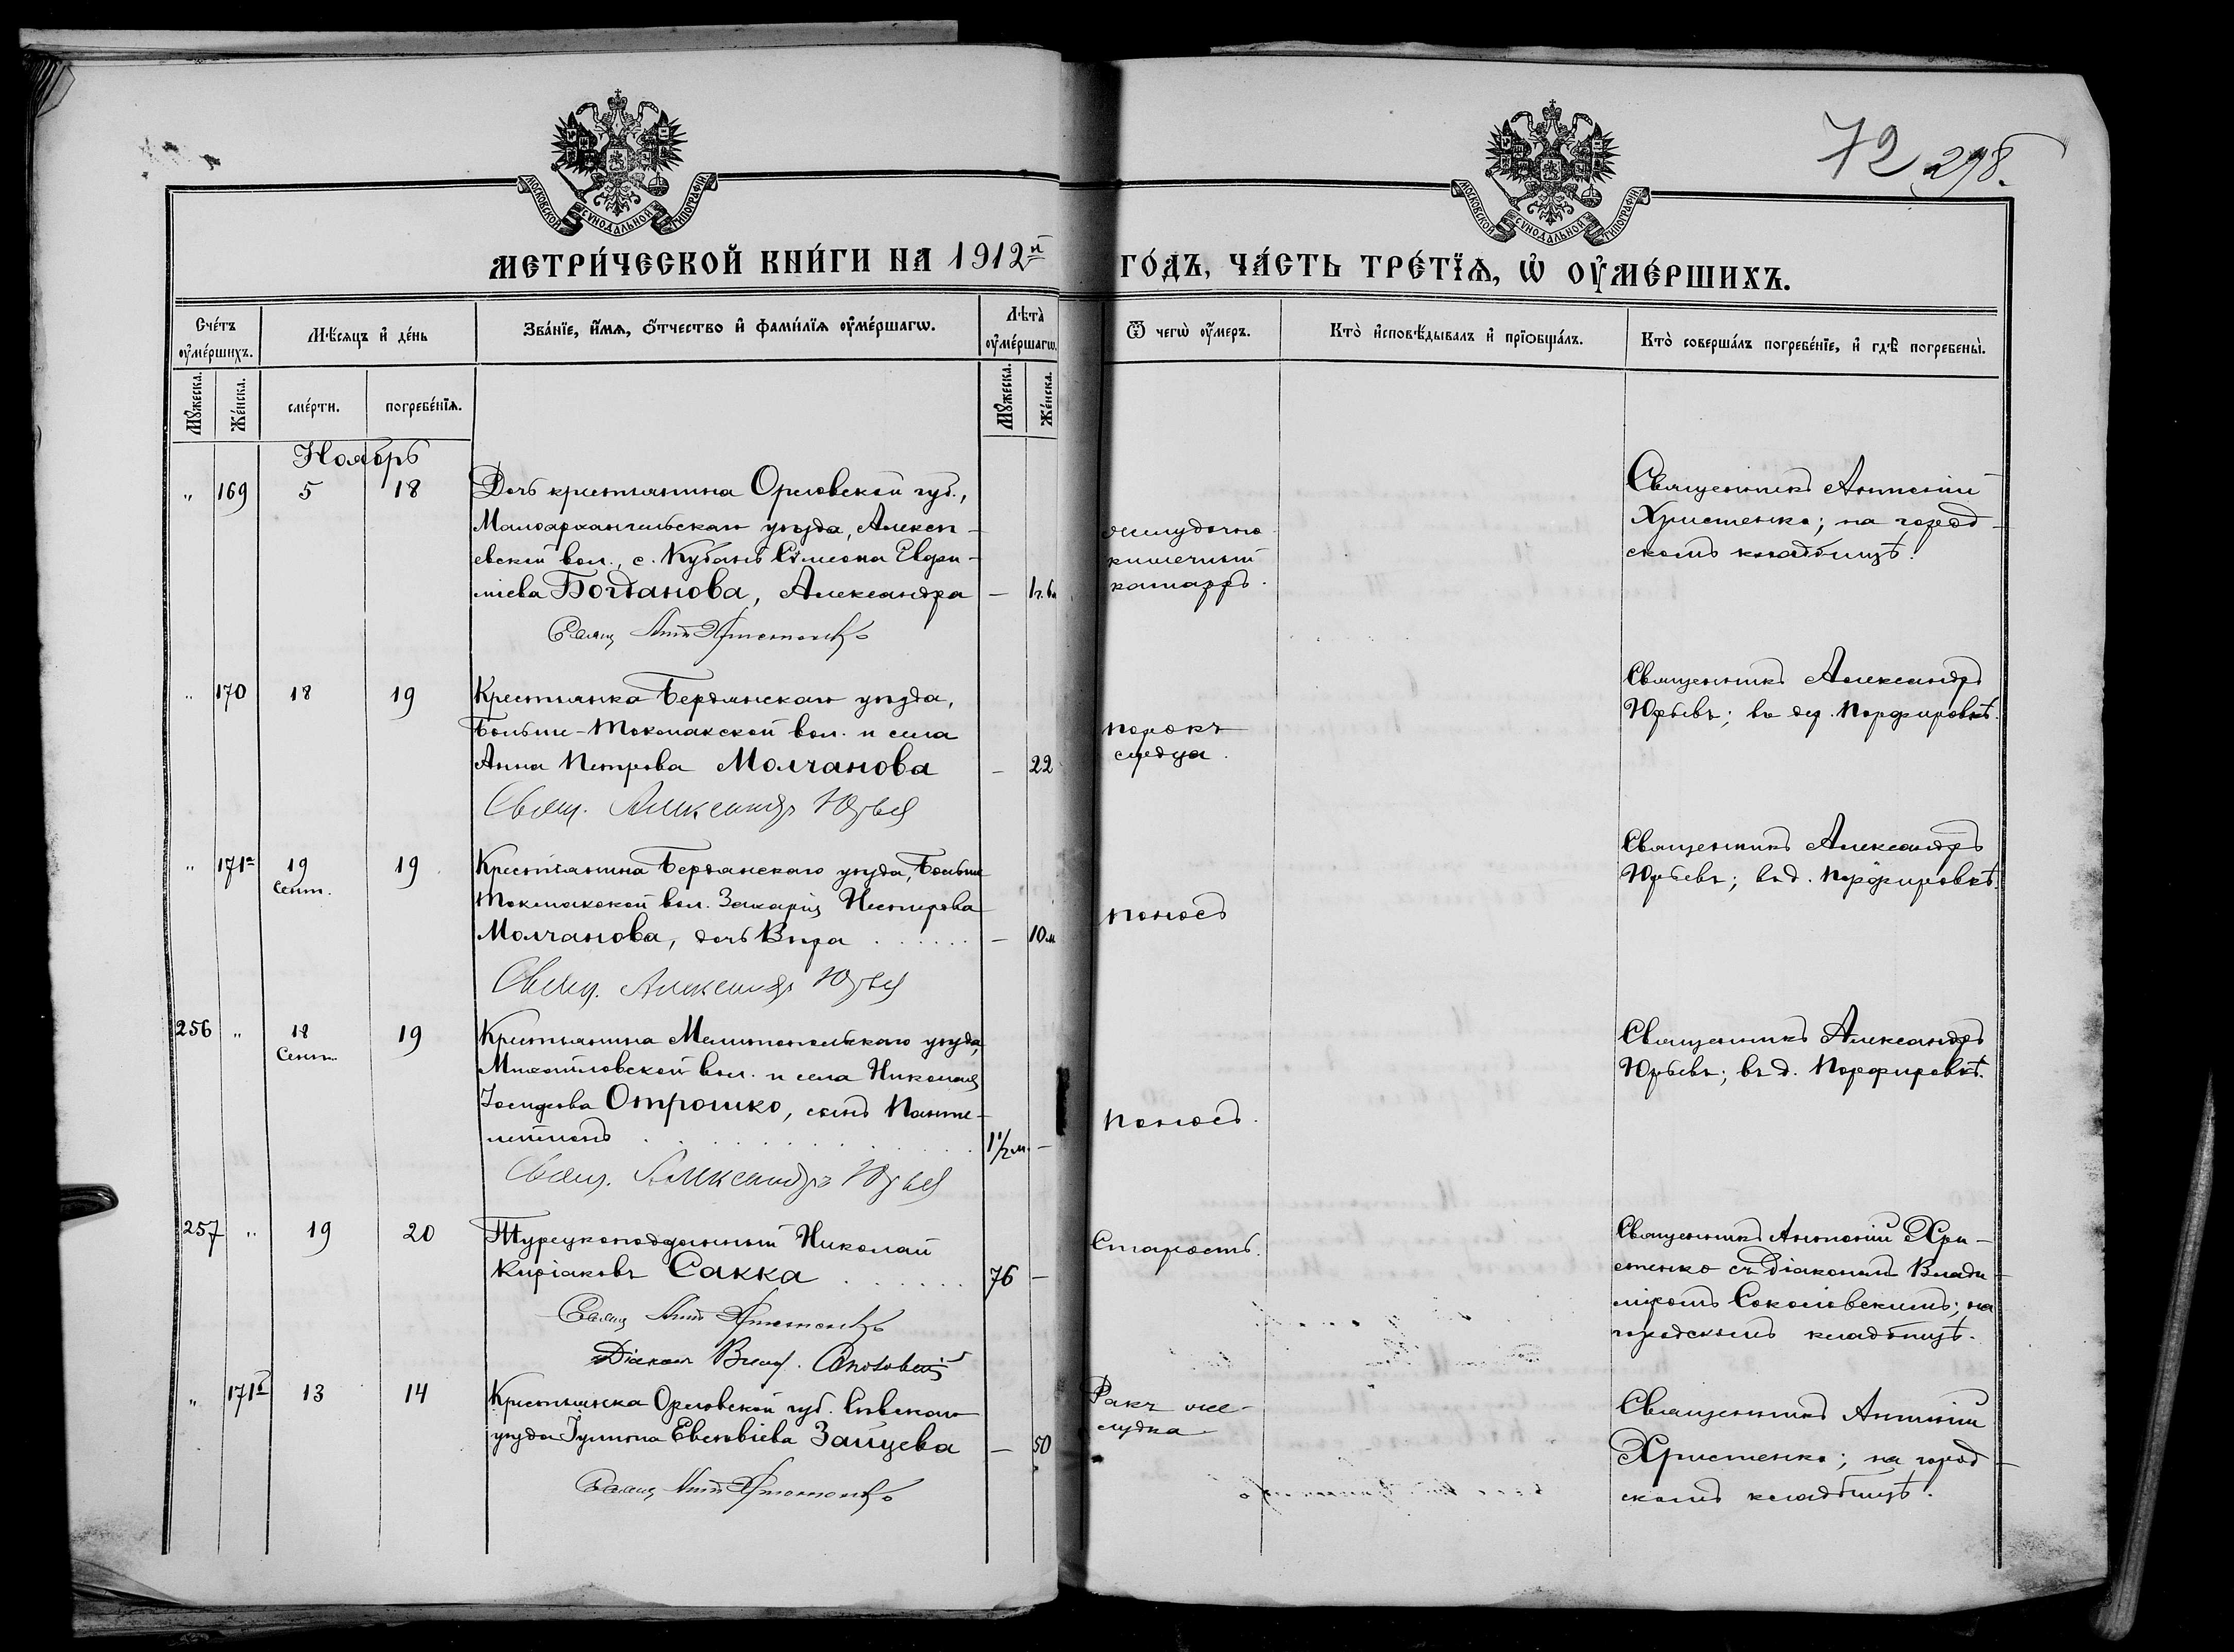 72 298.
МОСКОВСКОЙ СѴНОДАЛЬНОЙ ТИПОГРАФІИ
МОСКОВСКОЙ СѴНОДАЛЬНОЙ ТИПОГРАФІИ
МЕТРИ́ЧЕСКОЙ КНИ́ГИ НА 1912й ГО́ДЪ, ЧА́СТЬ ТРЕ́ТЇѦ, Ѡ҆ ОУ҆МЕ́РШИХЪ.
Сче́тъ оу҆ме́ршихъ.
Мѣ́сяцъ и҆ де́нь
Зва́нїе, и҆́мя, ѻ҆́тчество и҆ фами́лїя оу҆ме́ршагѡ.
Лѣ́та оу҆ме́ршагѡ.
Ѿ чегѡ̀ оу҆́меръ.
Кто̀ и҆сповѣ́дывалъ и҆ прїобща́лъ.
Кто̀ соверша́лъ погребе́нїе, и҆ гдѣ̀ погребены̀.
Мꙋжеска.
Же́нска.
сме́рти.
погребе́нїѧ.
Мꙋжеска.
Же́нска.
Ноябрь
" 169 5 18
Дочь крестьянина Орловской губ.,
Малоархангельскаго уѣзда, Алексѣ-
евской вол., с. Кубань Сѵмеона Евфи-
міева Богданова, Александра — 1г. 6м
Свящ Ант Христенко
желудочно-
кишечный
катарръ.
Священникъ Антоній
Христенко; на город-
скомъ кладбищѣ.
" 170 18 19
Крестьянка Бердянскаго уѣзда,
Больше-Токмакской вол. и села
Анна Петрова Молчанова — 22
Свящ. Александр Юрьев
порокъ
сердца.
Священникъ Александръ
Юрьевъ; въ дер. Порфировкѣ.
" 171а 19 Сент. 19
Крестьянина Бердянскаго уѣзда, Больше
Токмакской вол. Захарія Нестерова
Молчанова, дочь Вѣра . . . . . . — 10м
Свящ. Александр Юрьев
Поносъ
Священникъ Александръ
Юрьевъ; въ д. Порфировкѣ.
256 " 18 Сент. 19
Крестьянина Мелитопольскаго уѣзда,
Михайловской вол. и села Николая
Іосифова Отрошко, сынъ Панте-
леимонъ . . . . . . . . . 1 1/2 м. —
Свящ. Александръ Юрьев
Поносъ.
Священникъ Александръ
Юрьевъ; въ д. Порфировкѣ.
257 " 19 20
Турецкоподданный Николай
Киріаковъ Сакка . . . . . . 76 —
Свящ Ант Христенко
Діакон Влад. Соколовскій
Старость.
Священникъ Антоній Хри-
стенко съ діакономъ Влади-
міромъ Соколовскимъ; на
городскомъ кладбищѣ.
" 171б 13 14
Крестьянка Орловской губ. Сѣвскаго
уѣзда Іуліана Евсевіева Зайцева — 50
Свящ Ант Христенко
Ракъ же-
лудка
Священникъ Антоній
Христенко; на город-
скомъ кладбищѣ.